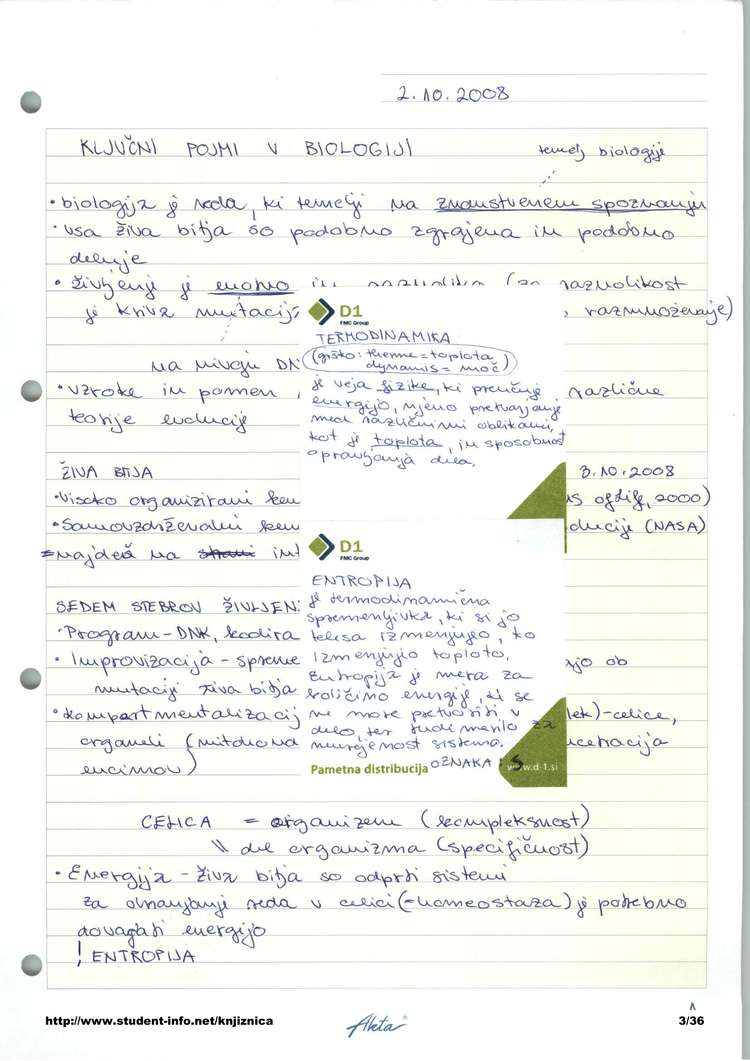 2.10.2008
KLJUČNI POJMI V BIOLOGIJI
temelj biologije
• biologija je veda, ki temelji na znanstvenem spoznanju
• vsa živa bitja so podobno zgrajena in podobno
deluje
• življenje je enotno in raznoliko (za raznolikost
je kriva mutacija , razmnoževanje)
na nivoju DN
• vzroke in pomen različne
teorije evolucije
ŽIVA BITJA 3.10.2008
• Visoko organizirani kem of life, 2000)
• Samovzdrževalni kem olucije (NASA)
= najdeš na int
SEDEM STEBROV ŽIVLJEN
• Program - DNK, kodira
• Improvizacija - spreme jo ob
mutaciji živa bitja
• Kompartmentalizacij lek) - celice,
organeli (mitohon centracija
encimov)
D1
FMC Group
TERMODINAMIKA
(grško: therme = toplota
dynamis = moč)
je veja fizike, ki preučuje
energijo, njeno pretvarjanje
med različnimi oblikami,
kot je toplota, in sposobnost
opravljanja dela.
D1
FMC Group
ENTROPIJA
je termodinamična
spremenljivka, ki si jo
telesa izmenjujejo, ko
izmenjujejo toploto.
Entropija je mera za
količino energije, ki se
ne more pretvoriti v
delo, ter tudi merilo za
neurejenost sistema.
OZNAKA: S
Pametna distribucija www.d-1.si
CELICA = organizem (kompleksnost)
\\ del organizma (specifičnost)
• Energija - živa bitja so odprti sistemi
za ohranjanje reda v celici (= homeostaza) je potrebno
dovajati energijo
! ENTROPIJA
http://www.student-info.net/knjiznica Akta 3/36